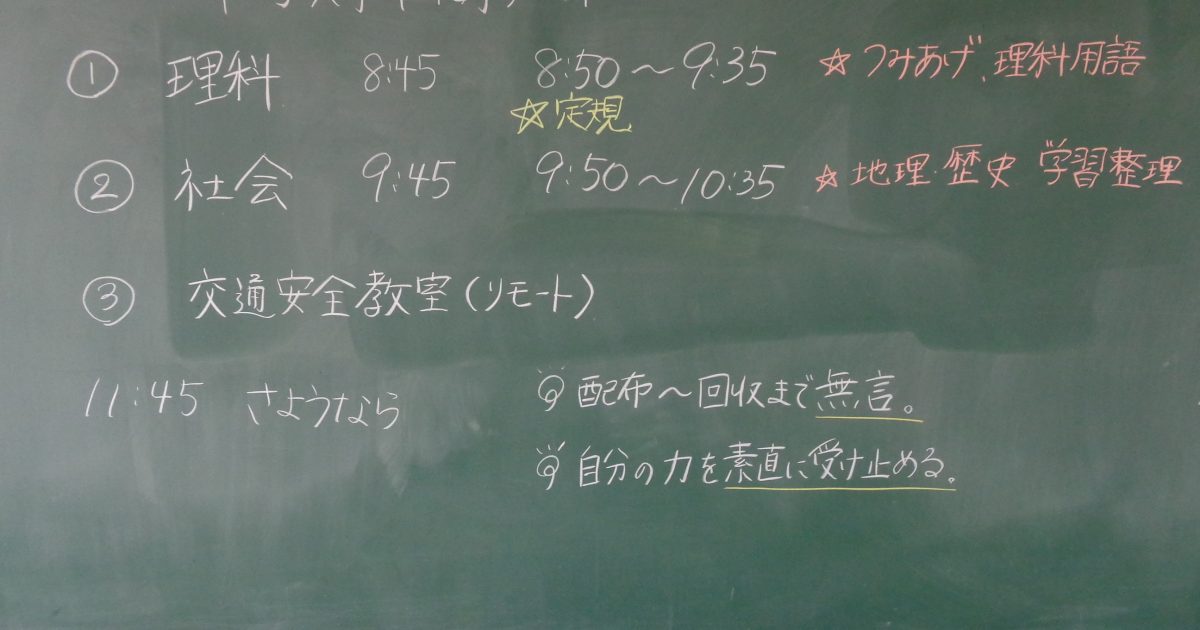 ① 理科 8:45 8:50～9:35 ☆つみあげ、理科用語
☆定規
② 社会 9:45 9:50～10:35 ☆地理・歴史 学習整理
③ 交通安全教室(リモート)
11:45 さようなら
配布～回収まで無言。
自分の力を素直に受け止める。